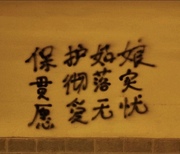 保护如娘
贯彻落实
愿爱无忧